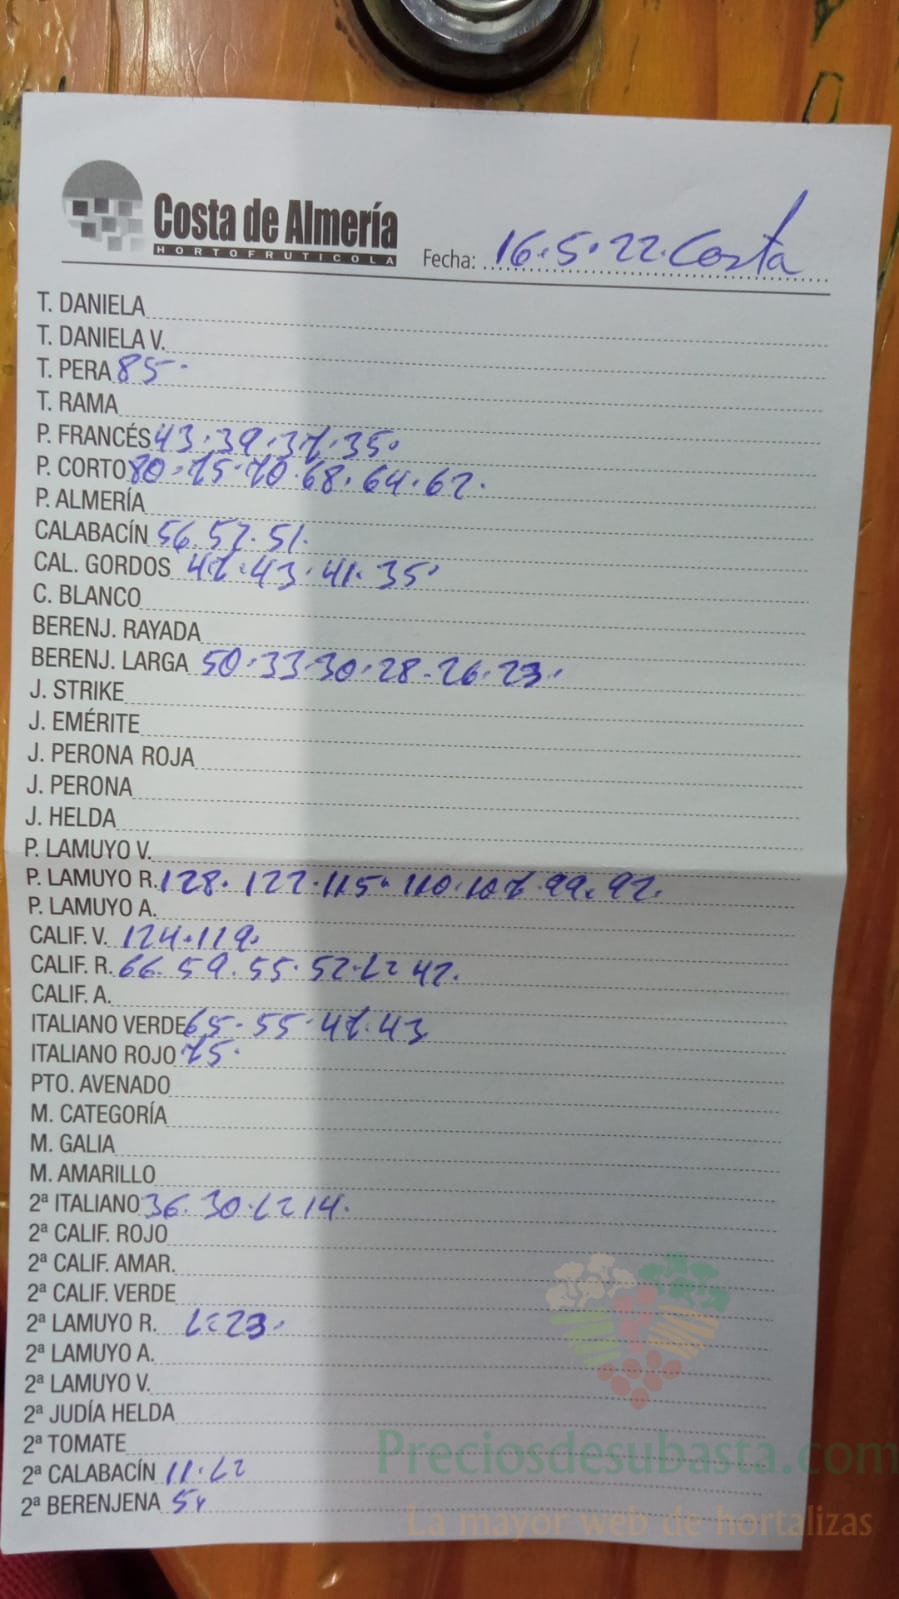 Costa de Almería
HORTOFRUTICOLA
Fecha: 16.5.22. Costa
T. DANIELA
T. DANIELA V.
T. PERA 85.
T. RAMA
P. FRANCÉS 43.39.37.35.
P. CORTO 80.75.70.68.64.62.
P. ALMERÍA
CALABACÍN 56.52.51.
CAL. GORDOS 47.43.41.35.
C. BLANCO
BERENJ. RAYADA
BERENJ. LARGA 50.33.30.28.26.23.
J. STRIKE
J. EMÉRITE
J. PERONA ROJA
J. PERONA
J. HELDA
P. LAMUYO V.
P. LAMUYO R. 128.122.115.110.107.99.92.
P. LAMUYO A.
CALIF. V. 124.119.
CALIF. R. 66.59.55.52. 42.
CALIF. A.
ITALIANO VERDE 65.55.47.43
ITALIANO ROJO 75.
PTO. AVENADO
M. CATEGORÍA
M. GALIA
M. AMARILLO
2ª ITALIANO 36.30. 14.
2ª CALIF. ROJO
2ª CALIF. AMAR.
2ª CALIF. VERDE
2ª LAMUYO R. 23.
2ª LAMUYO A.
2ª LAMUYO V.
2ª JUDÍA HELDA
2ª TOMATE
2ª CALABACÍN 11.
2ª BERENJENA
Preciosdesubasta.com
La mayor web de hortalizas